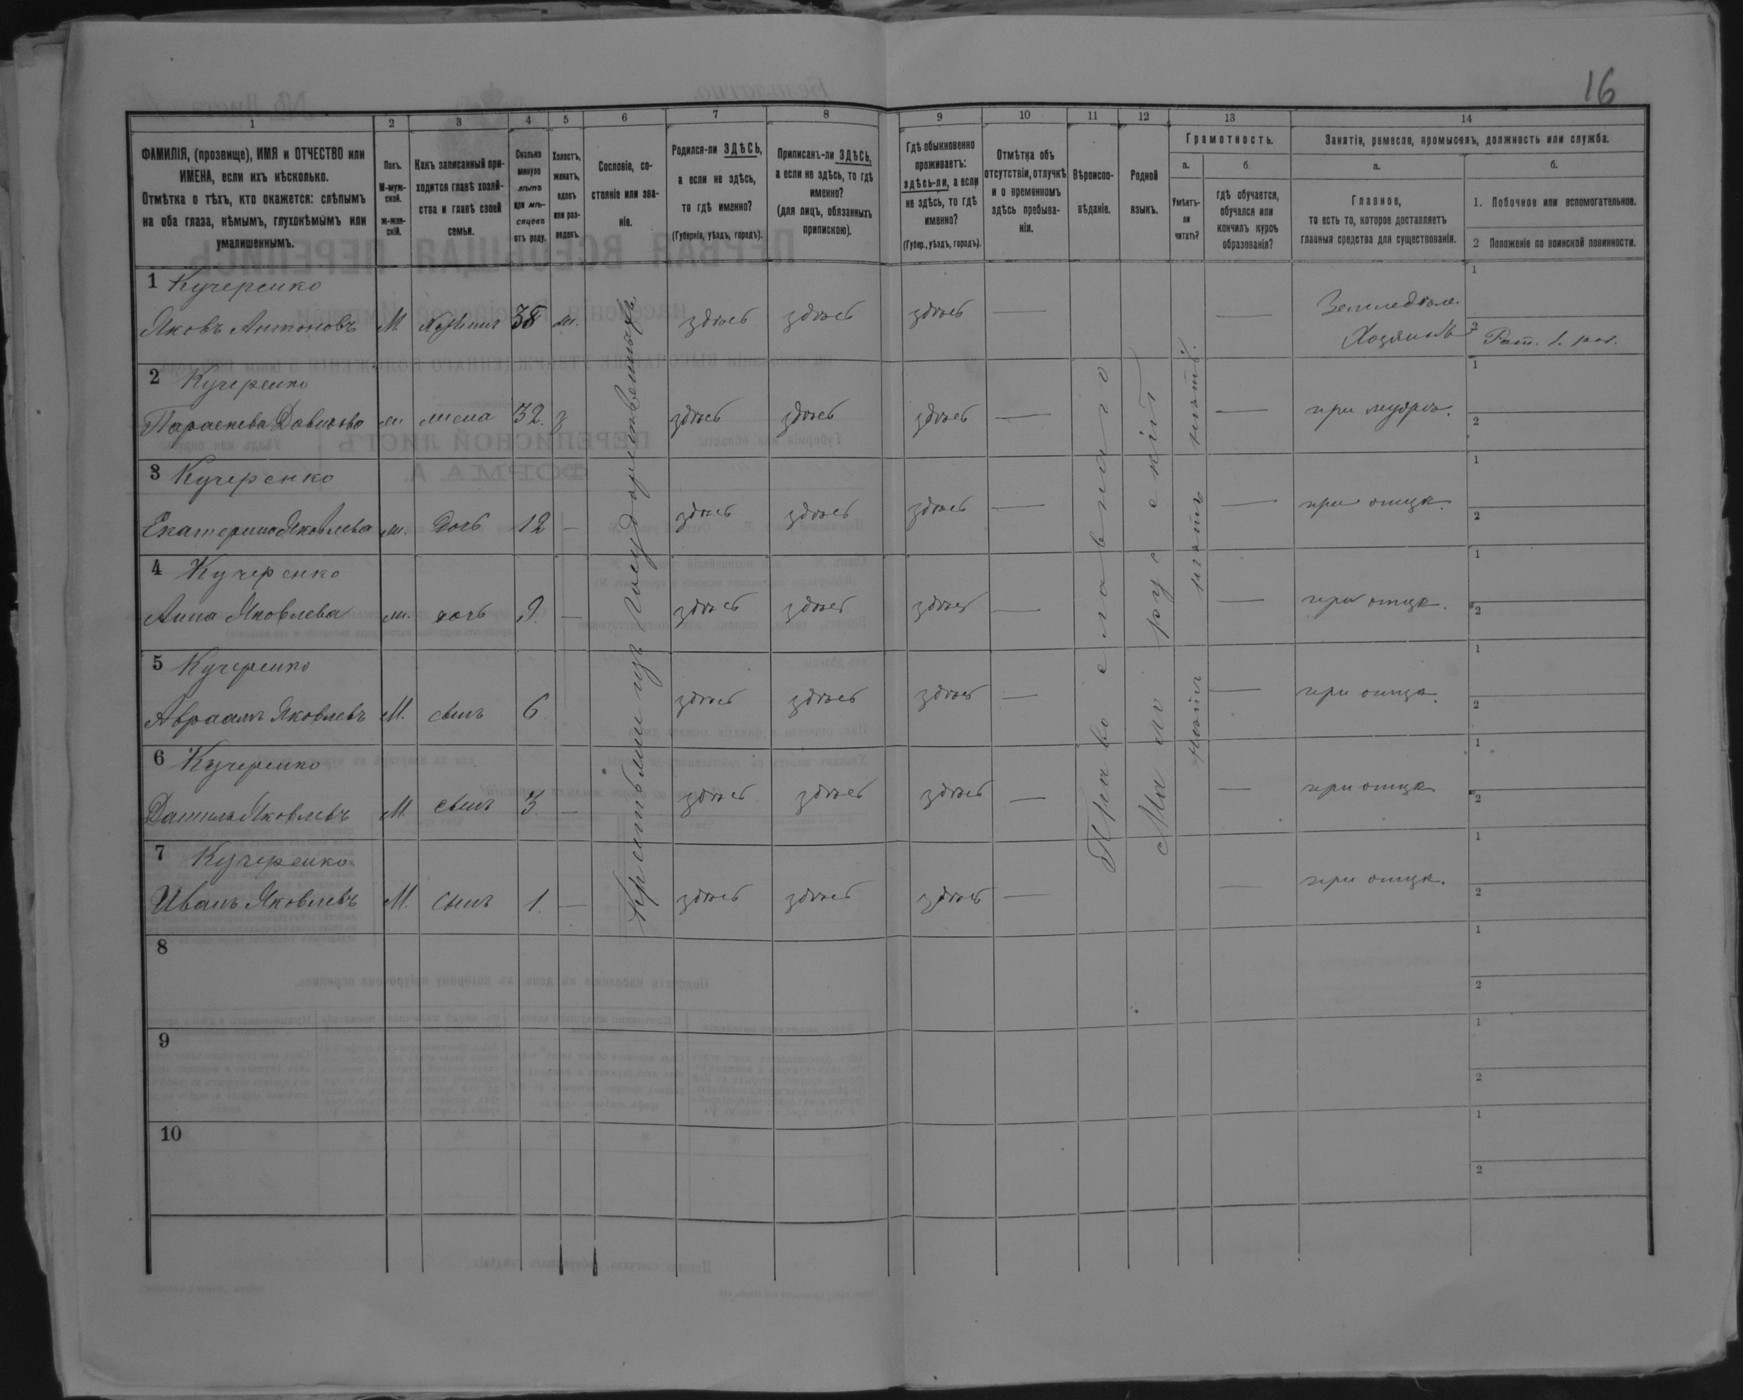 16
1 2 3 4 5 6 7 8 9 10 11 12 13 14
ФАМИЛІЯ, (прозвище), ИМЯ и ОТЧЕСТВО или
ИМЕНА, если ихъ нѣсколько.
Отмѣтка о тѣхъ, кто окажется: слѣпымъ
на оба глаза, нѣмымъ, глухонѣмымъ или
умалишеннымъ.
Полъ.
М-муж-
ской.
Ж-жен-
скій.
Какъ записанный при-
ходится главѣ хозяй-
ства и главѣ своей
семьи.
Сколько
минуло
лѣтъ
или мѣ-
сяцевъ
отъ роду.
Холостъ,
женатъ,
вдовъ
или раз-
веденъ.
Сословіе, со-
стояніе или зва-
ніе.
Родился-ли ЗДѢСЬ,
а если не здѣсь,
то гдѣ именно?
(Губернія, уѣздъ, городъ).
Приписанъ-ли ЗДѢСЬ,
а если не здѣсь, то гдѣ
именно?
(для лицъ, обязанныхъ
припискою).
Гдѣ обыкновенно
проживаетъ:
здѣсь-ли, а если
не здѣсь, то гдѣ
именно?
(Губер., уѣздъ, городъ).
Отмѣтка объ
отсутствіи, отлучкѣ
и о временномъ
здѣсь пребыва-
ніи.
Вѣроиспо-
вѣданіе.
Родной
языкъ.
Грамотность.
а.
Умѣетъ-
ли
читать?
б.
Гдѣ обучается,
обучался или
кончилъ курсъ
образованія?
Занятіе, ремесло, промыселъ, должность или служба.
а.
Главное,
то есть то, которое доставляетъ
главныя средства для существованія.
б.
1. Побочное или вспомогательное.
2 Положеніе по воинской повинности.
1 Кучеренко
Яковъ Антоновъ М Хозяинъ 38 ж. здѣсь здѣсь здѣсь — — Земледѣле.
Хозяинъ
1
2 Рат. 1. раз.
2 Кучеренко
Параскева Давидова ж жена 32. з здѣсь здѣсь здѣсь — — при мужѣ.
1
2
3 Кучеренко
Екатерина Яковлева ж. дочь 12 — здѣсь здѣсь здѣсь — — при отцѣ.
1
2
4 Кучеренко
Анна Яковлева ж. дочь 9. — здѣсь здѣсь здѣсь — — при отцѣ.
1
2
5 Кучеренко
Авраамъ Яковлевъ М. сынъ 6 здѣсь здѣсь здѣсь — — при отцѣ.
1
2
6 Кучеренко
Данила Яковлевъ М. сынъ 3. — здѣсь здѣсь здѣсь — — при отцѣ
1
2
7 Кучеренко
Иванъ Яковлевъ М. сынъ 1. — здѣсь здѣсь здѣсь — — при отцѣ.
1
2
Крестьяне изъ Государственныхъ
Православнаго
Малорусскій
8
1
2
9
1
2
10
1
2